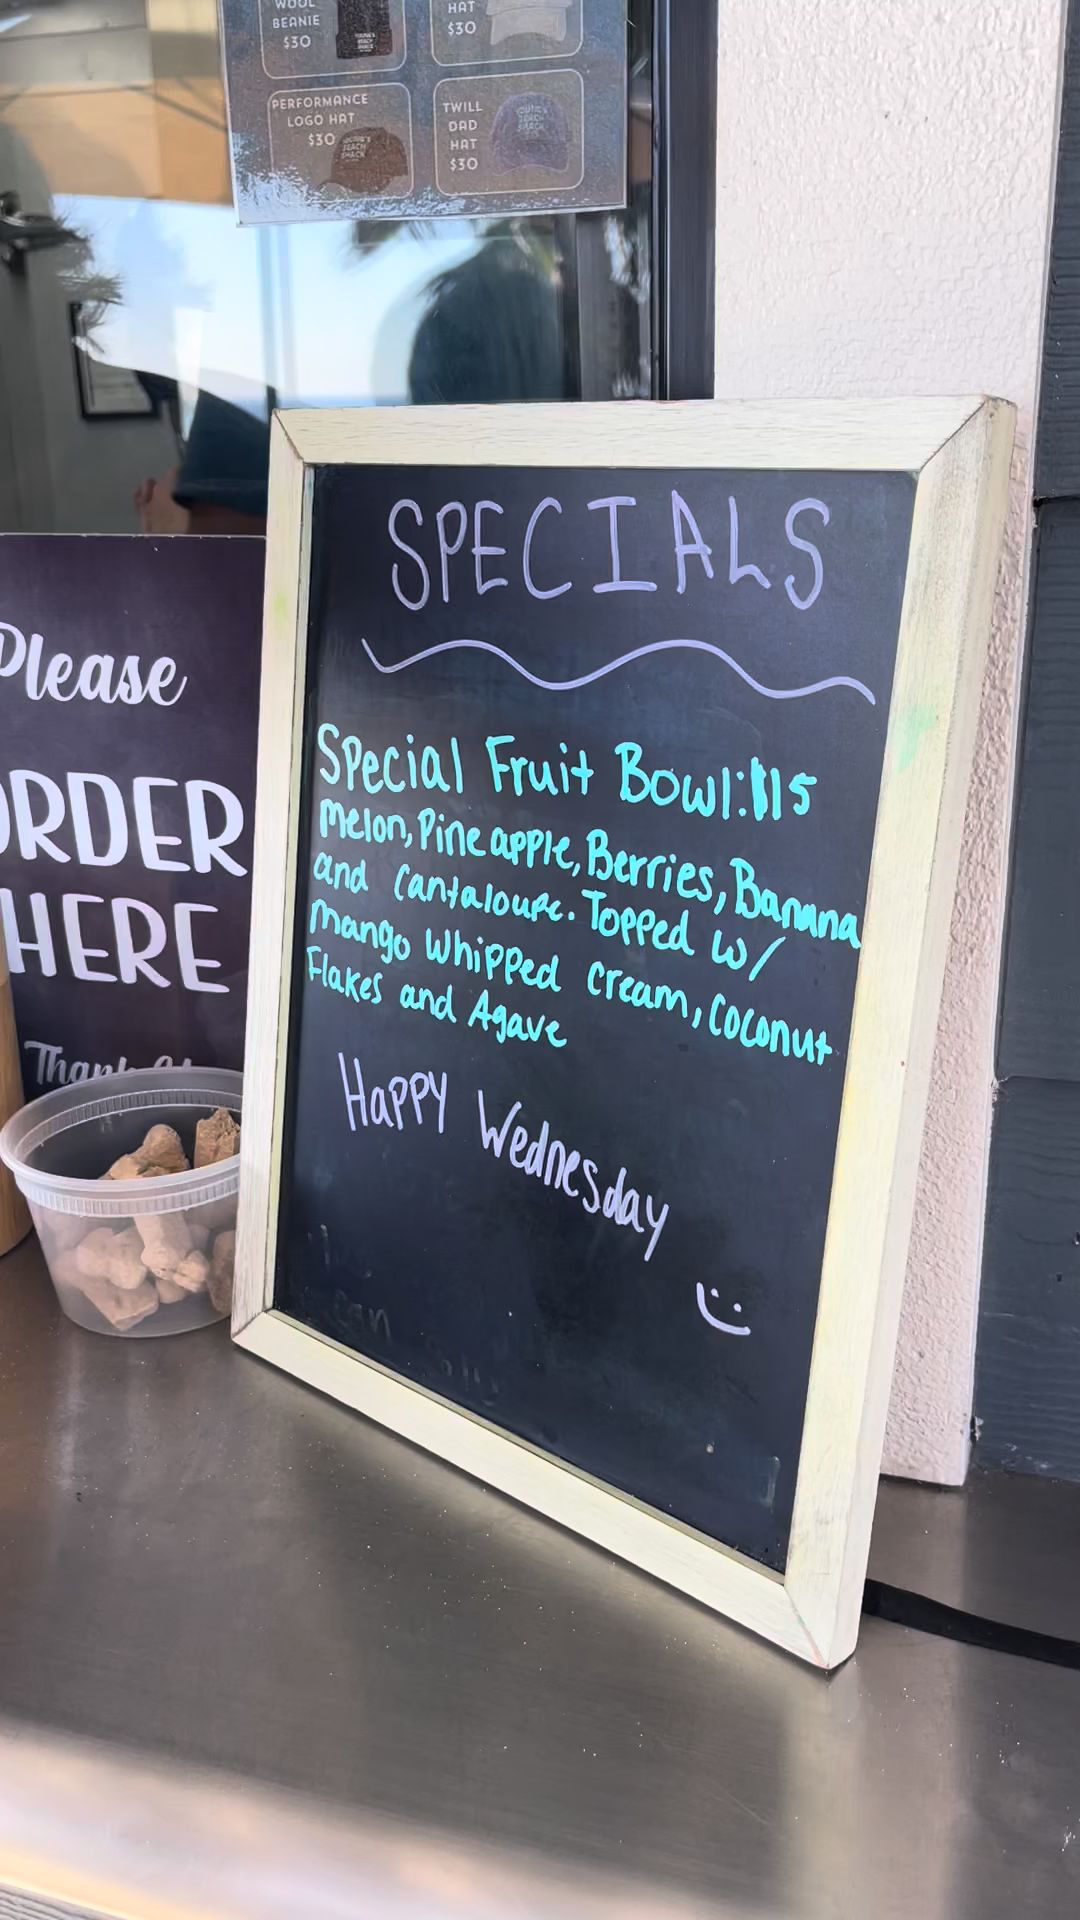 WOOL
BEANIE
$30
HAT
$30
PERFORMANCE
LOGO HAT
$30
YOUNG'S
BEACH
SHACK
TWILL
DAD
HAT
$30
YOUNG'S
BEACH
SHACK
Please
ORDER
HERE
SPECIALS
Special Fruit Bowl: $15
Melon, Pineapple, Berries, Banana
and Cantaloupe. Topped w/
Mango Whipped Cream, Coconut
Flakes and Agave
Happy Wednesday